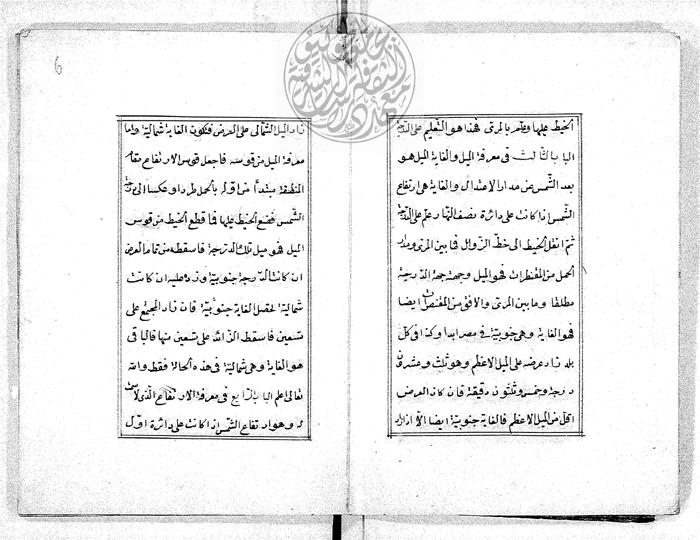 الخيط عليها وعلم بالمرى فهذا هو التعليم على الدرجة
الباب الثالث فى معرفة الميل والغاية الميل هو
بعد الشمس عن مدار الاعتدال والغاية هى ارتفاع
الشمس اذا كانت على دائرة نصف النهار وعلم على الدرجة
ثم انقل الخيط الى خط الزوال فما بين المرى ومدار
الحمل من المقنطرات فهو الميل وجهته جهة الدرجة
مطلقا وما بين المرى والافق من المقنطرات ايضا
فهو الغاية وهى جنوبية فى مصر ابدا وكذا فى كل
بلد زاد عرضه على الميل الاعظم وهو ثلث وعشرون
درجة وخمس وثلثون دقيقة فان كان العرض
اقل من الميل الاعظم فالغاية جنوبية ايضا الا ان
زاد الميل الشمالى على العرض فتكون الغاية شمالية واما
معرفة الميل من قوسه فاجعل قوس الارتفاع مقام
المنطقة مبتدأ من اوله بالحمل طردا وعكسا الى درجة
الشمس فضع الخيط عليها فما قطع الخيط من قوس
الميل فهو ميل تلك الدرجة فاسقطه من تمام العرض
ان كانت الدرجة جنوبية وزده عليه ان كانت
شمالية تحصل الغاية جنوبية فان زاد المجتمع على
تسعين فاسقط الزائد على تسعين منها فالباقى
هو الغاية وهى شمالية فى هذه الحالة فقط والله
تعالى اعلم الباب الرابع فى معرفة الارتفاع الذى لا سمت
له وهو ارتفاع الشمس اذا كانت على دائرة اول
6